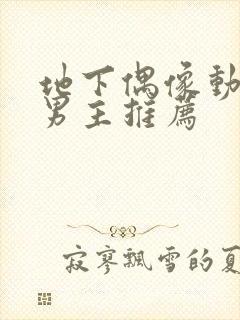 地下偶像動
男主推薦
寂寥飄雪的夏